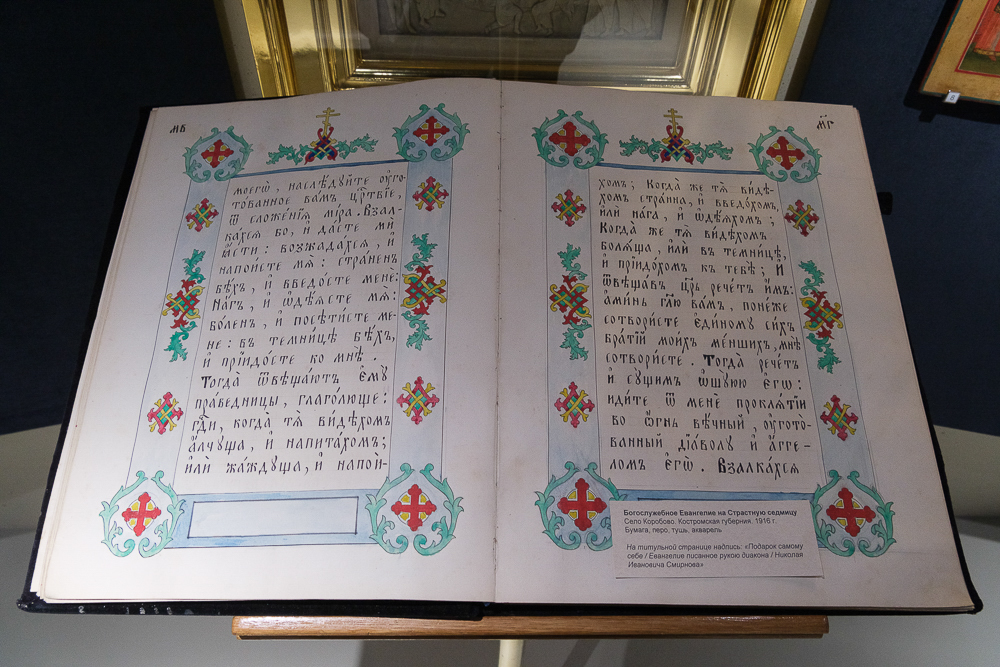 мв
моегѡ̀, наслѣ́дуйте оу҆гото-
то́ванное ва́мъ црⷭ҇твіе,
ѿ сложе́нїѧ мі́ра. Взал-
ка́хсѧ бо, и҆ да́сте ми
ꙗ҆́сти: возжада́хсѧ, и҆
напои́сте мѧ̀: стра́ненъ
бѣ́хъ, и҆ введо́сте менѐ:
На́гъ, и҆ ѡ҆дѣ́ѧсте мѧ̀:
бо́ленъ, и҆ посѣти́сте ме-
не: въ темни́цѣ бѣ́хъ,
и҆ прїидо́сте ко мнѣ̀.
Тогда̀ ѿвѣща́ютъ є҆мꙋ̀
пра́ведницы, глаго́люще:
гдⷭ҇и, когда̀ тѧ̀ ви́дѣхомъ
а҆́лчуща, и҆ напита́хомъ;
и҆лѝ жа́ждуща, и҆ напои́-
мг
хомъ; Когда́ же тѧ̀ ви́дѣ-
хомъ стра́нна, и҆ введо́хомъ,
и҆лѝ на́га, и҆ ѡ҆дѣ́ѧхомъ;
Когда́ же тѧ̀ ви́дѣхомъ
болѧ́ща, и҆лѝ въ темни́цѣ,
и҆ прїидо́хомъ къ тебѣ̀; И҆
ѿвѣща́въ цр҃ь рече́тъ и҆̀мъ:
а҆ми́нь гл҃ю ва́мъ, поне́же
сотвори́сте є҆ди́ному си́хъ
бра́тїй мои́хъ ме́ншихъ, мнѣ̀
сотвори́сте. Тогда̀ рече́тъ
и҆ су́щимъ ѡ҆шу́юю є҆гѡ̀:
иди́те ѿ менє̀ проклѧ́тїи
во ѻ҆́гнь вѣ́чный, оу҆гото́-
ванный дїа́волу и҆ а҆́гге-
ломъ є҆гѡ̀. Взалка́хсѧ
Богослужебное Евангелие на Страстную седмицу
Село Коробово. Костромская губерния. 1916 г.
Бумага, перо, тушь, акварель
На титульной странице надпись: «Подарок самому
себе / Евангелие писанное рукою диакона / Николая
Ивановича Смирнова»